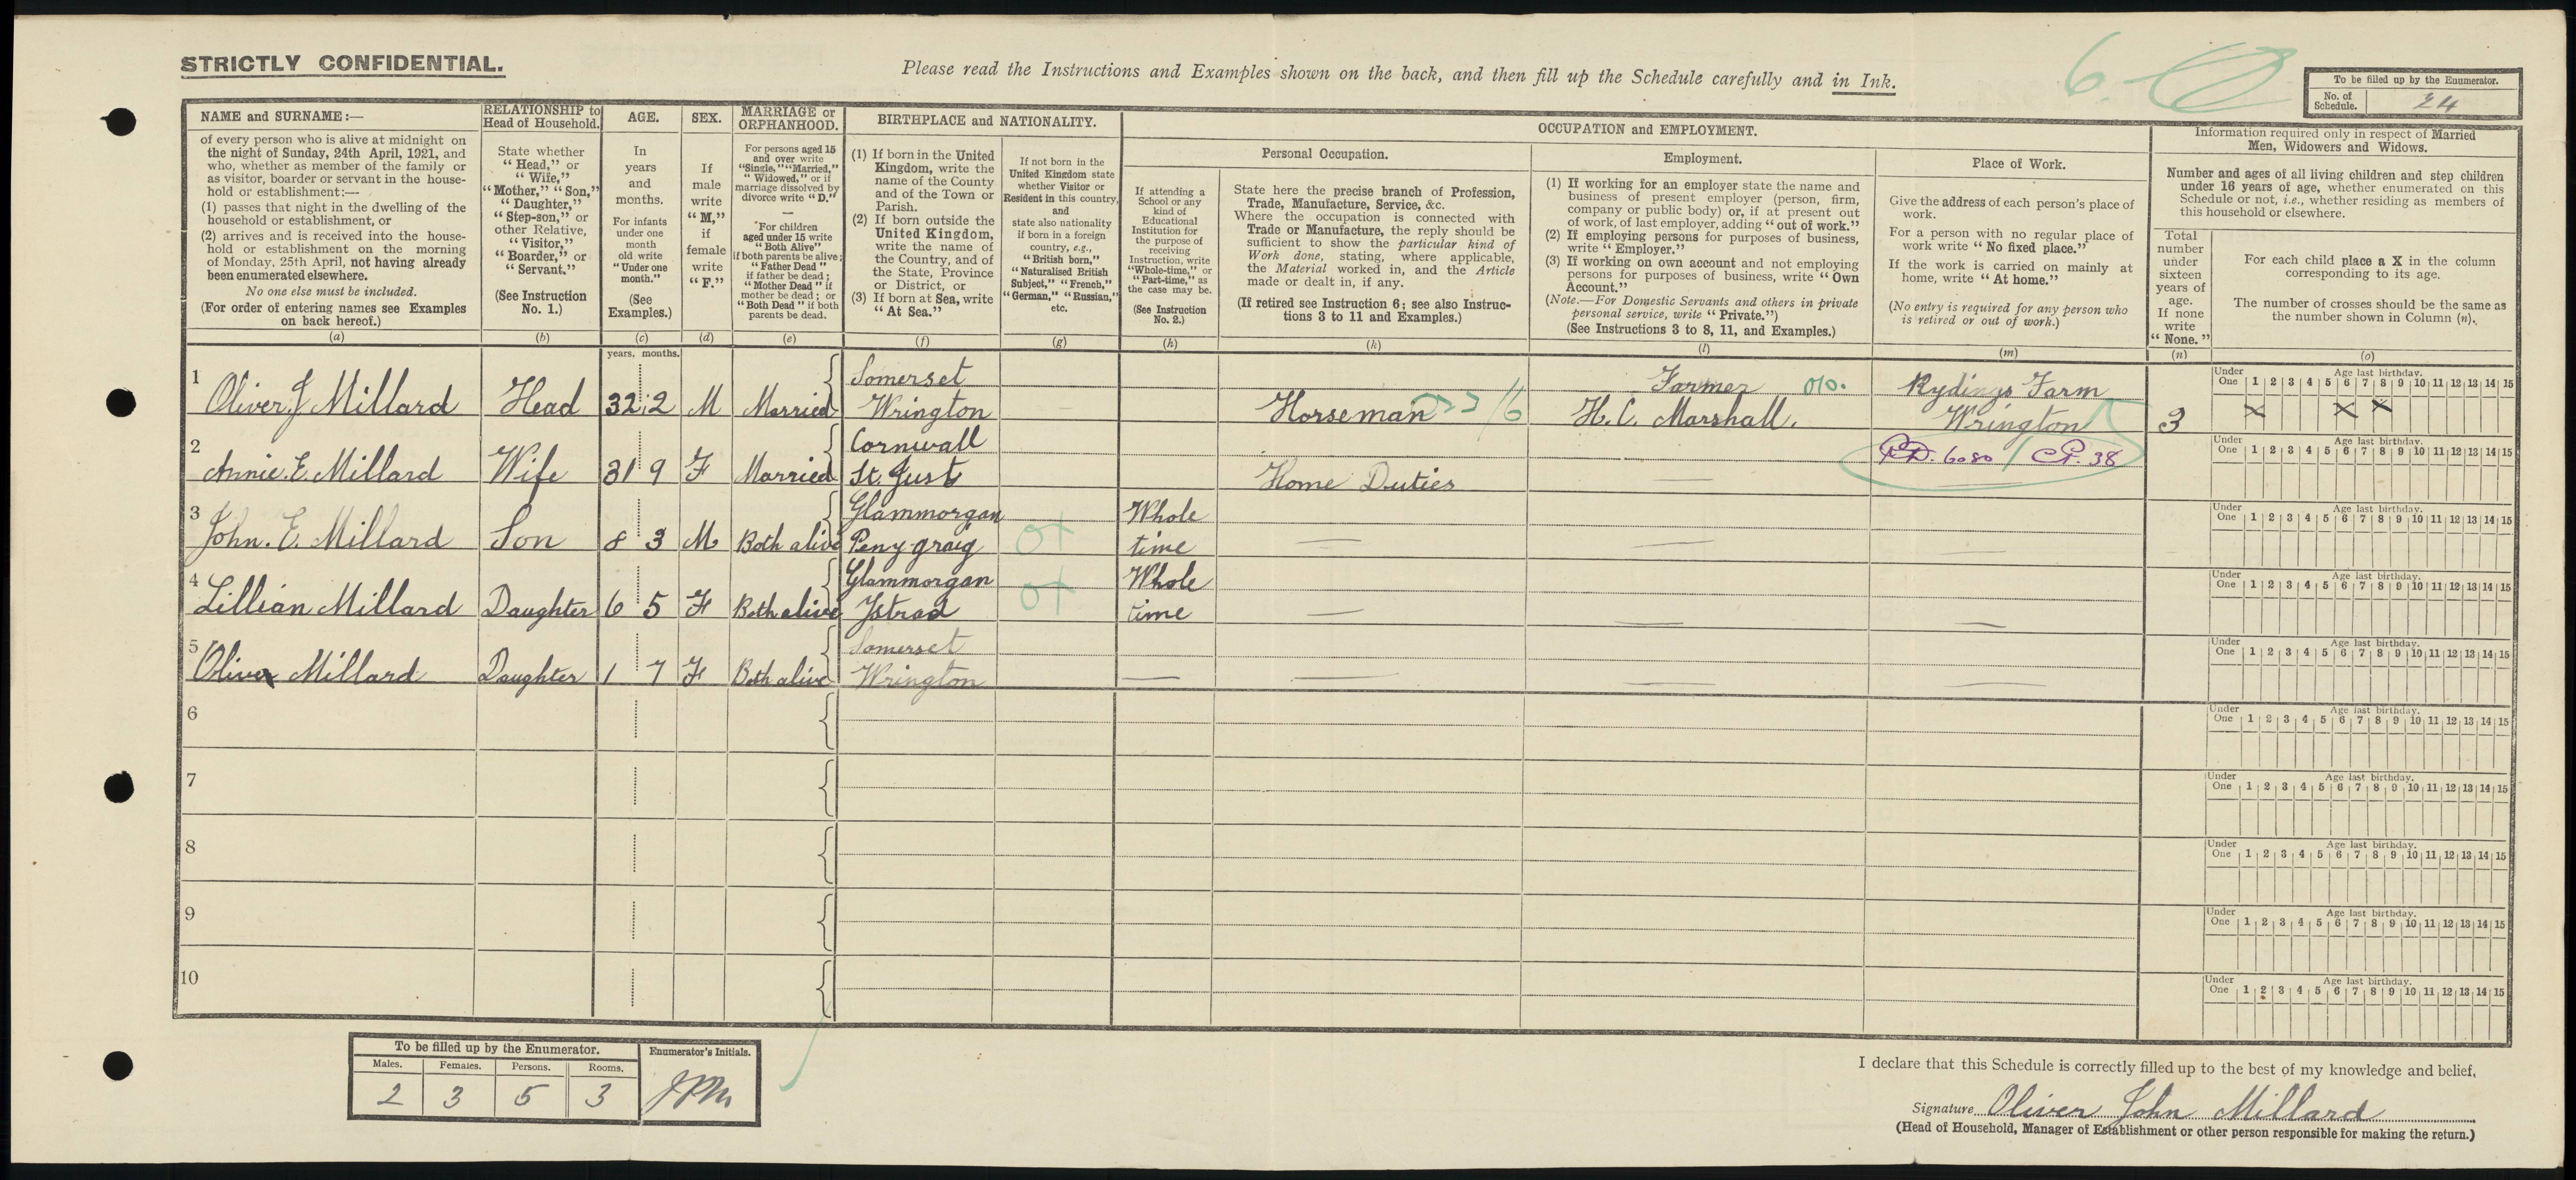 STRICTLY CONFIDENTIAL.
Please read the Instructions and Examples shown on the back, and then fill up the Schedule carefully and in Ink.
To be filled up by the Enumerator.
No. of Schedule. 24
NAME and SURNAME:—
of every person who is alive at midnight on
the night of Sunday, 24th April, 1921, and
who, whether as member of the family or
as visitor, boarder or servant in the house-
hold or establishment:—
(1) passes that night in the dwelling of the
household or establishment, or
(2) arrives and is received into the house-
hold or establishment on the morning
of Monday, 25th April, not having already
been enumerated elsewhere.
No one else must be included.
(For order of entering names see Examples
on back hereof.)
(a)
RELATIONSHIP to
Head of Household.
State whether
"Head," or
"Wife,"
"Mother," "Son,"
"Daughter,"
"Step-son," or
other Relative,
"Visitor,"
"Boarder," or
"Servant."
(See Instruction
No. 1.)
(b)
AGE.
In
years
and
months.
For infants
under one
month
old write
"Under one
month."
(See
Examples.)
(c)
SEX.
If
male
write
"M,"
if
female
write
"F."
(d)
MARRIAGE or
ORPHANHOOD.
For persons aged 15
and over write
"Single," "Married,"
"Widowed," or if
marriage dissolved by
divorce write "D."
—
For children
aged under 15 write
"Both Alive"
if both parents be alive;
"Father Dead"
if father be dead;
"Mother Dead" if
mother be dead; or
"Both Dead" if both
parents be dead.
(e)
BIRTHPLACE and NATIONALITY.
(1) If born in the United
Kingdom, write the
name of the County
and of the Town or
Parish.
(2) If born outside the
United Kingdom,
write the name of
the Country, and of
the State, Province
or District, or
(3) If born at Sea, write
"At Sea."
(f)
If not born in the
United Kingdom state
whether Visitor or
Resident in this country,
and
state also nationality
if born in a foreign
country, e.g.,
"British born,"
"Naturalised British
Subject," "French,"
"German," "Russian,"
etc.
(g)
OCCUPATION and EMPLOYMENT.
Personal Occupation.
If attending a
School or any
kind of
Educational
Institution for
the purpose of
receiving
Instruction, write
"Whole-time," or
"Part-time," as
the case may be.
(See Instruction
No. 2.)
(h)
State here the precise branch of Profession,
Trade, Manufacture, Service, &c.
Where the occupation is connected with
Trade or Manufacture, the reply should be
sufficient to show the particular kind of
Work done, stating, where applicable,
the Material worked in, and the Article
made or dealt in, if any.
(If retired see Instruction 6; see also Instruc-
tions 3 to 11 and Examples.)
(k)
Employment.
(1) If working for an employer state the name and
business of present employer (person, firm,
company or public body) or, if at present out
of work, of last employer, adding "out of work."
(2) If employing persons for purposes of business,
write "Employer."
(3) If working on own account and not employing
persons for purposes of business, write "Own
Account."
(Note.—For Domestic Servants and others in private
personal service, write "Private.")
(See Instructions 3 to 8, 11, and Examples.)
(l)
Place of Work.
Give the address of each person's place of
work.
For a person with no regular place of
work write "No fixed place."
If the work is carried on mainly at
home, write "At home."
(No entry is required for any person who
is retired or out of work.)
(m)
Information required only in respect of Married
Men, Widowers and Widows.
Number and ages of all living children and step children
under 16 years of age, whether enumerated on this
Schedule or not, i.e., whether residing as members of
this household or elsewhere.
Total
number
under
sixteen
years of
age.
If none
write
"None."
(n)
For each child place a X in the column
corresponding to its age.
The number of crosses should be the same as
the number shown in Column (n).
(o)
years. months.
Under One Age last birthday. 1 2 3 4 5 6 7 8 9 10 11 12 13 14 15
1 Oliver J Millard Head 32 2 M Married Somerset Wrington — Horseman Farmer H. C. Marshall. 010. Rydings Farm Wrington 3 X X X
Under One Age last birthday. 1 2 3 4 5 6 7 8 9 10 11 12 13 14 15
2 Annie. E. Millard Wife 31 9 F Married Cornwall St. Just Home Duties — R.D. 6080 / C.P. 38
Under One Age last birthday. 1 2 3 4 5 6 7 8 9 10 11 12 13 14 15
3 John. E. Millard Son 8 3 M Both alive Glammorgan Peny-graig Whole time — — —
Under One Age last birthday. 1 2 3 4 5 6 7 8 9 10 11 12 13 14 15
4 Lillian Millard Daughter 6 5 F Both alive Glammorgan Ystrad Whole time — — —
Under One Age last birthday. 1 2 3 4 5 6 7 8 9 10 11 12 13 14 15
5 Olive Millard Daughter 1 7 F Both alive Somerset Wrington — — — —
6
Under One Age last birthday. 1 2 3 4 5 6 7 8 9 10 11 12 13 14 15
7
Under One Age last birthday. 1 2 3 4 5 6 7 8 9 10 11 12 13 14 15
8
Under One Age last birthday. 1 2 3 4 5 6 7 8 9 10 11 12 13 14 15
9
Under One Age last birthday. 1 2 3 4 5 6 7 8 9 10 11 12 13 14 15
10
Under One Age last birthday. 1 2 3 4 5 6 7 8 9 10 11 12 13 14 15
To be filled up by the Enumerator.
Males. Females. Persons. Rooms.
2 3 5 3
Enumerator's Initials.
I declare that this Schedule is correctly filled up to the best of my knowledge and belief.
Signature Oliver John Millard
(Head of Household, Manager of Establishment or other person responsible for making the return.)